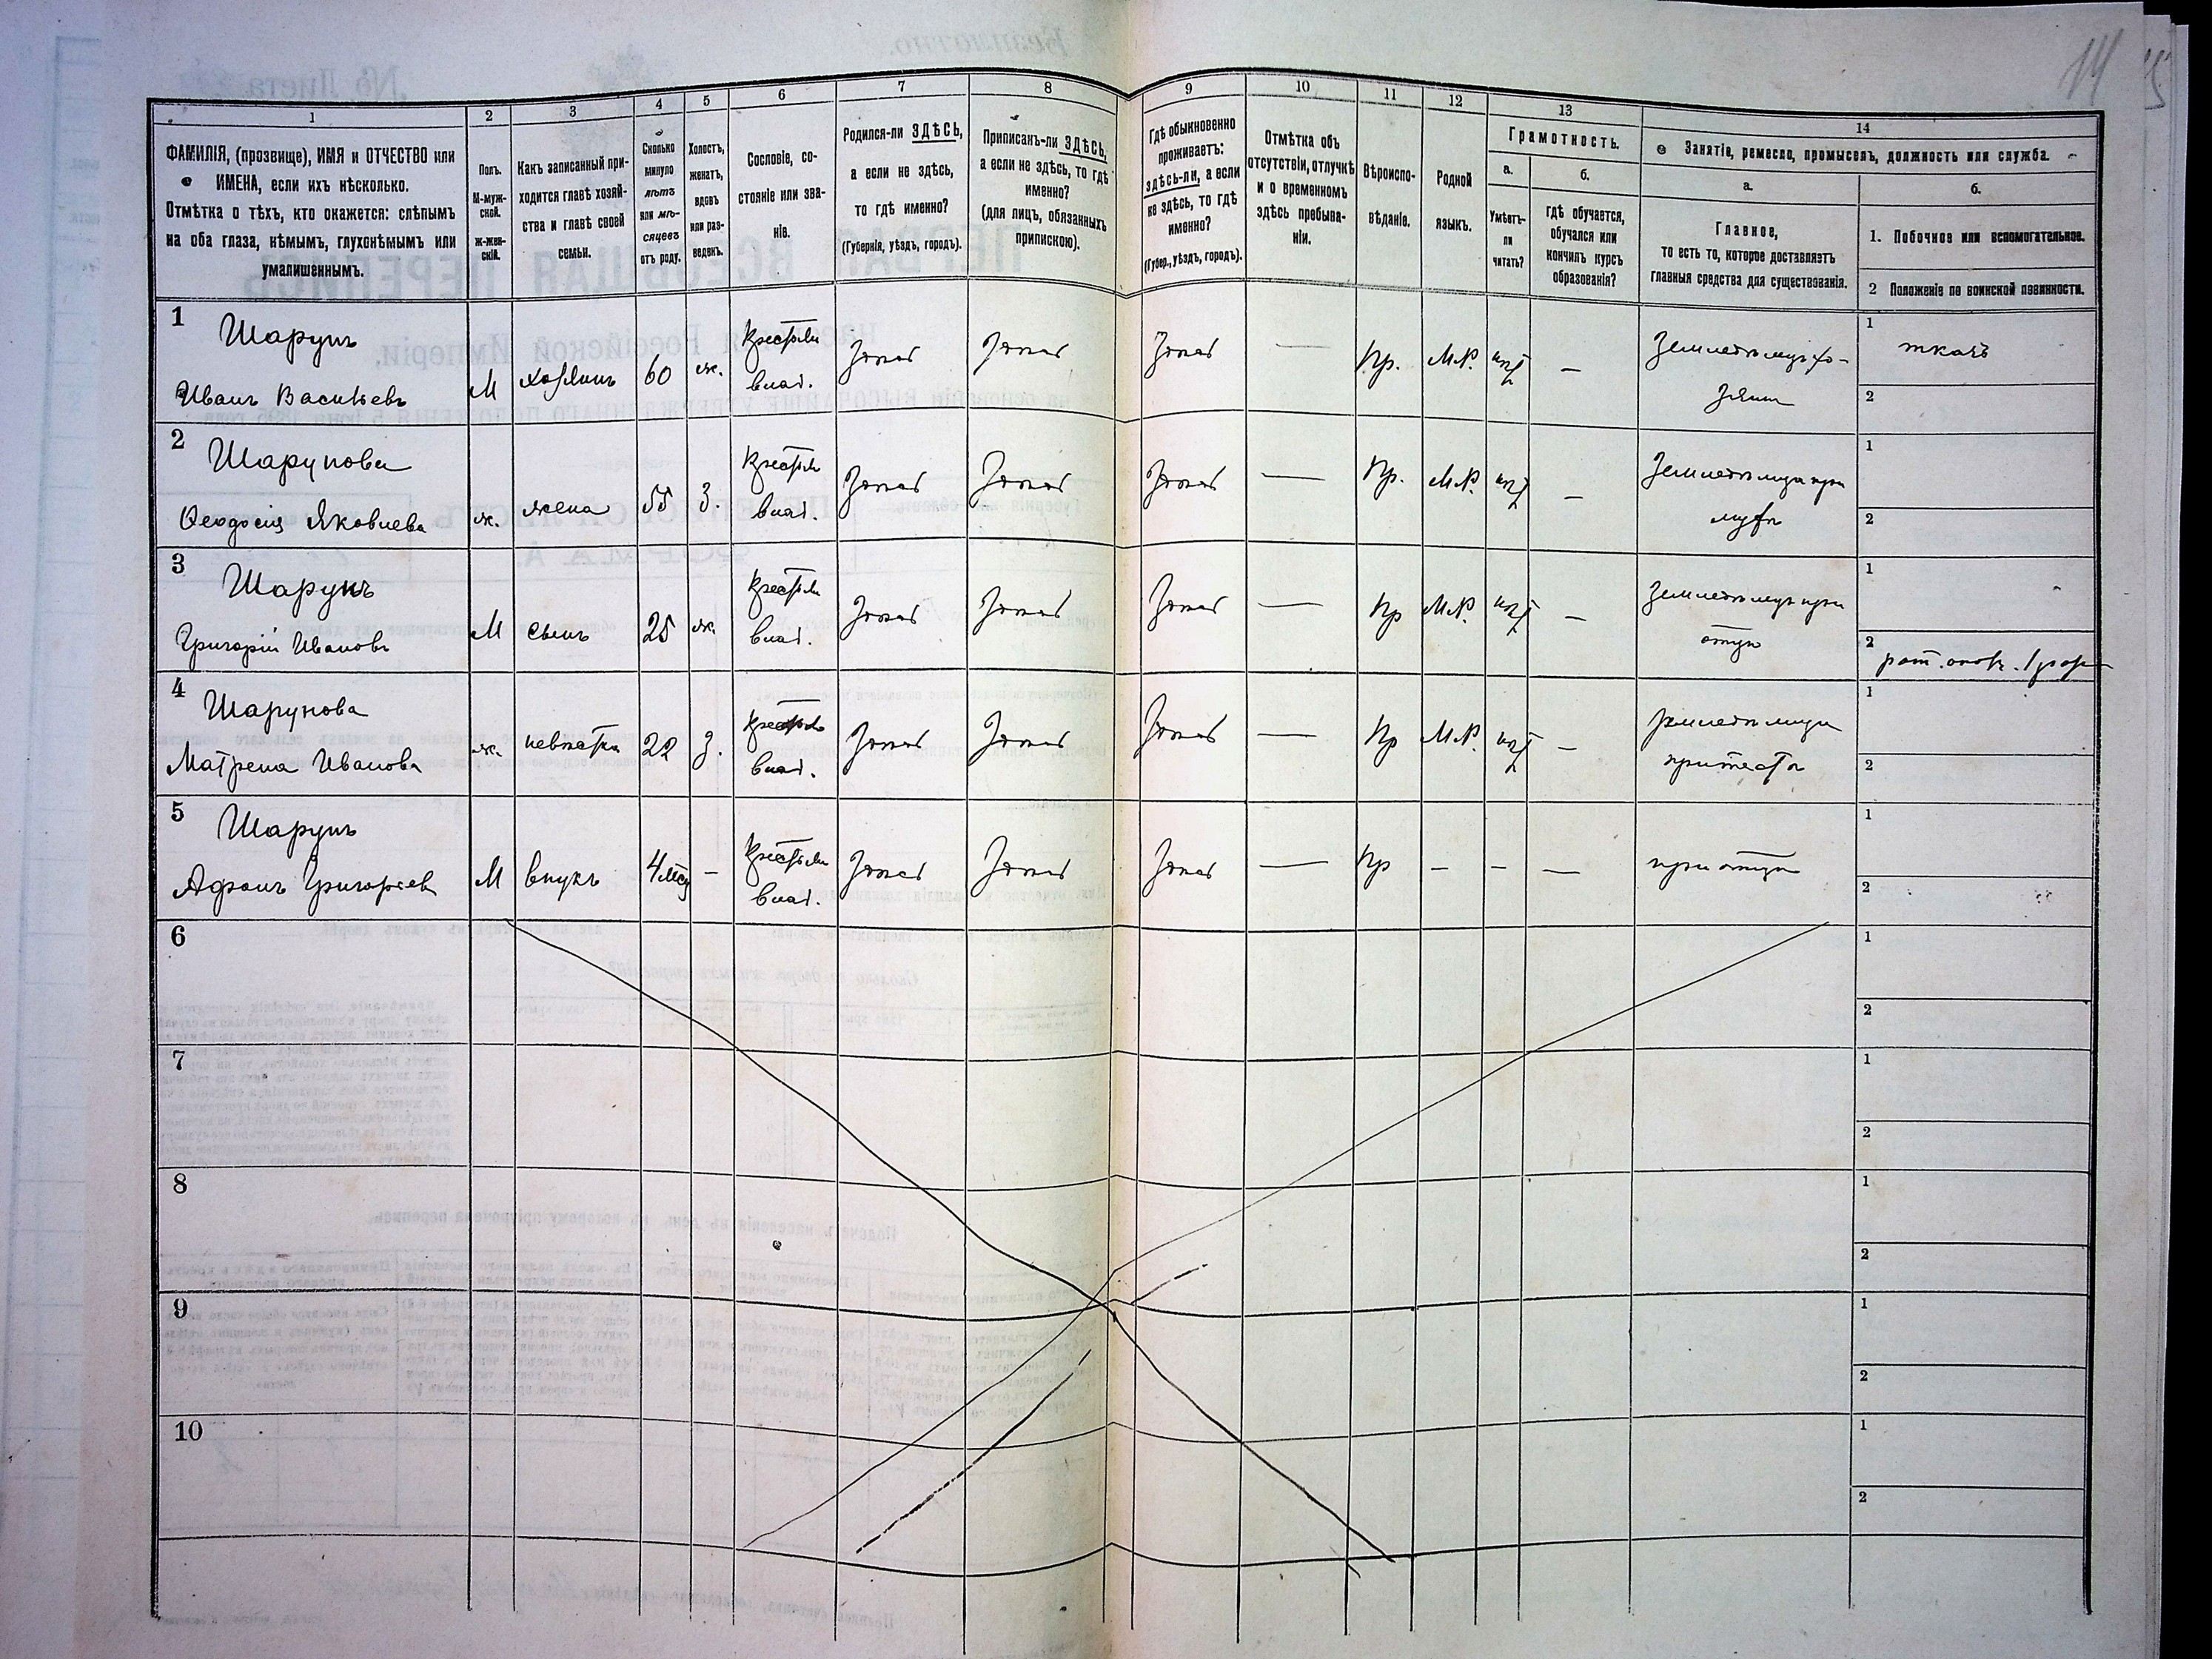 14
1
2
3
4
5
6
7
8
9
10
11
12
13
14
ФАМИЛІЯ, (прозвище), ИМЯ и ОТЧЕСТВО или
ИМЕНА, если ихъ нѣсколько.
Отмѣтка о тѣхъ, кто окажется: слѣпымъ
на оба глаза, нѣмымъ, глухонѣмымъ или
умалишеннымъ.
Полъ.
М-муж-
ской.
ж-жен-
скій.
Какъ записанный при-
ходится главѣ хозяй-
ства и главѣ своей
семьи.
Сколько
минуло
лѣтъ
или мѣ-
сяцевъ
отъ роду.
Холостъ,
женатъ,
вдовъ
или раз-
веденъ.
Сословіе, со-
стояніе или зва-
ніе.
Родился-ли ЗДѢСЬ,
а если не здѣсь,
то гдѣ именно?
(Губернія, уѣздъ, городъ).
Приписанъ-ли ЗДѢСЬ,
а если не здѣсь, то гдѣ
именно?
(для лицъ, обязанныхъ
припискою).
Гдѣ обыкновенно
проживаетъ:
здѣсь-ли, а если
не здѣсь, то гдѣ
именно?
(Губер., уѣздъ, городъ).
Отмѣтка объ
отсутствіи, отлучкѣ
и о временномъ
здѣсь пребыва-
ніи.
Вѣроиспо-
вѣданіе.
Родной
языкъ.
Грамотность.
а.
Умѣетъ-
ли
читать?
б.
гдѣ обучается,
обучался или
кончилъ курсъ
образованія?
Занятіе, ремесло, промыселъ, должность или служба.
а.
Главное,
то есть то, которое доставляетъ
главныя средства для существованія.
б.
1. Побочное или вспомогательное.
2 Положеніе по воинской повинности.
1
Шарунъ
Иванъ Васильевъ
М
хозяинъ
60
ж.
Крестьян
влад.
Здѣсь
Здѣсь
Здѣсь
—
Пр.
М.Р.
нѣт
—
Земледѣлецъ хо-
зяин
1 ткачъ
2
2
Шарунова
Феодосія Яковлева
ж.
жена
55
З.
Крестьян
влад.
Здѣсь
Здѣсь
Здѣсь
—
Пр.
М.Р.
нѣт
—
Земледѣлица при
мужѣ
1
2
3
Шарунъ
Григорій Ивановъ
М
сынъ
25
ж.
Крестьян
влад.
Здѣсь
Здѣсь
Здѣсь
—
Пр
М.Р.
нѣт
—
Земледѣлецъ при
отцѣ
1
2 рат. опол. 1 разр
4
Шарунова
Матрена Иванова
ж.
невѣстка
22
З.
Крестьян
влад.
Здѣсь
Здѣсь
Здѣсь
—
Пр
М.Р.
нѣт
—
Земледѣлица
при тестѣ
1
2
5
Шарунъ
Афонъ Григорьев
М
внукъ
4 мѣс
—
Крестьян
влад.
Здѣсь
Здѣсь
Здѣсь
—
Пр
—
—
—
при отцѣ
1
2
6
1
2
7
1
2
8
1
2
9
1
2
10
1
2